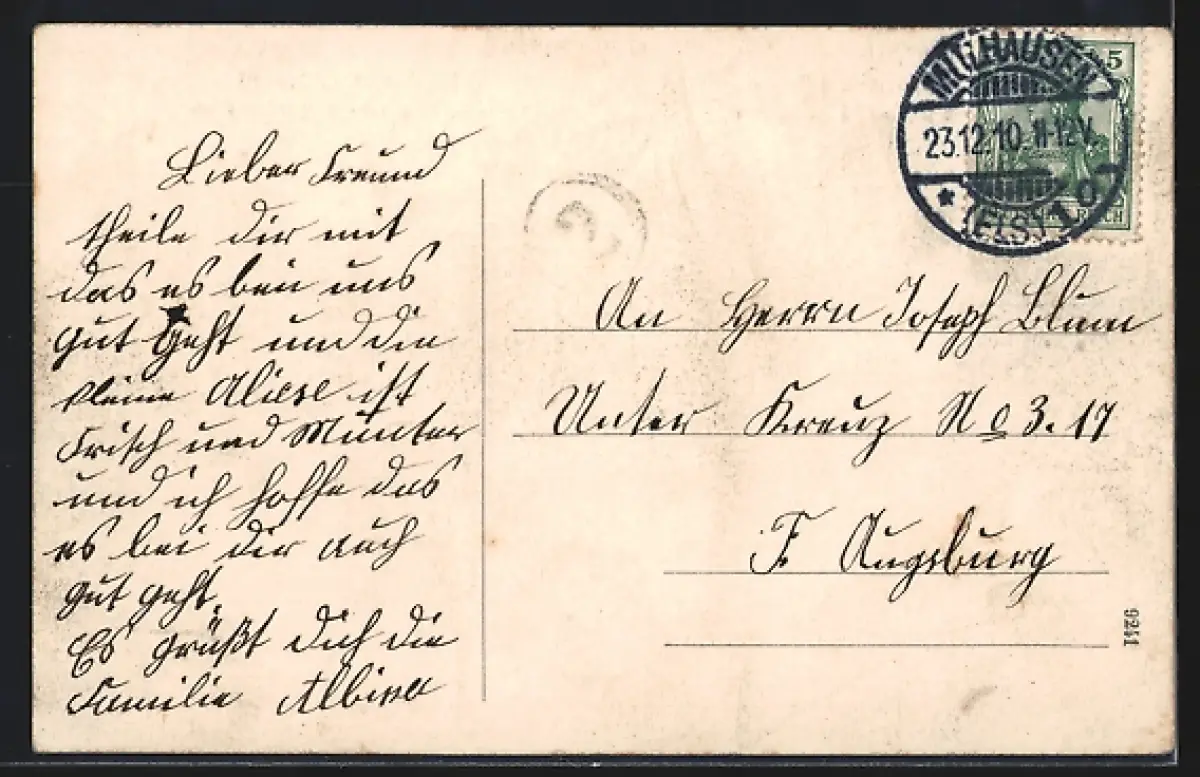 Lieber Freund
theile dir mit
das es bei uns
gut geht und die
kleine Aliese ist
Frisch und Munter
und ich hoffe das
es bei dir auch
gut geht.
Es grüßt dich die
Familie Albisser
MÜLHAUSEN
23.12.10. 11-12V.
* (ELS) 1 d
5
REICH
An Herrn Joseph Blum
Unter Kreuz No 3. 17
Augsburg
9241